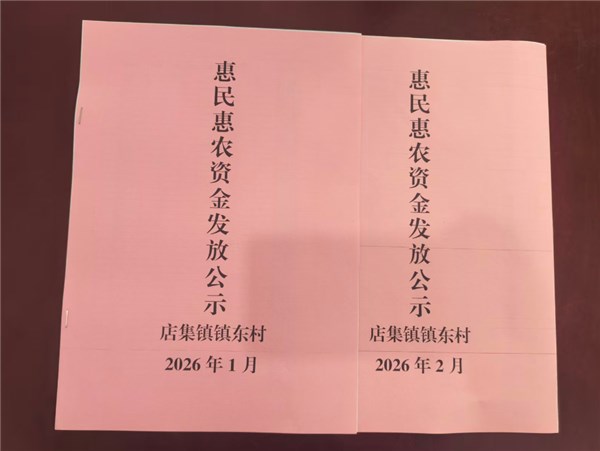 惠民惠农资金发放公示
店集镇镇东村
2026年1月
惠民惠农资金发放公示
店集镇镇东村
2026年2月